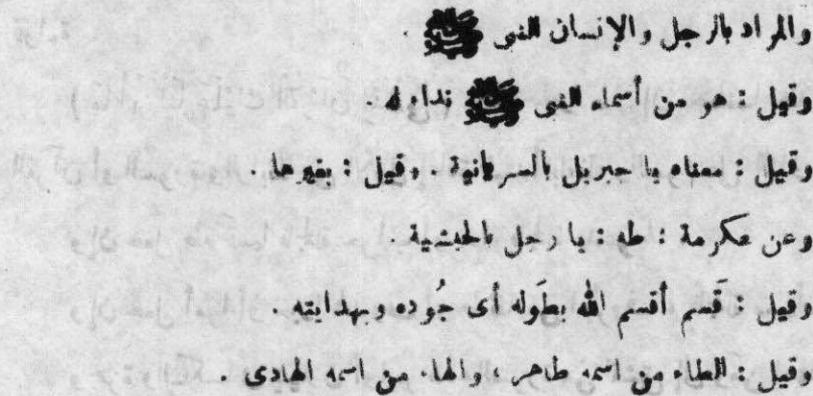 والمراد بالرجل والإنسان النبى ﷺ .
وقيل : هو من أسماء النبى ﷺ نداء له .
وقيل : معناه يا جبريل بالسريانية . وقيل : بغيرها .
وعن عكرمة : طه : يا رجل بالحبشية .
وقيل : قَسم أقسم الله بطَوله أى جُوده وبهدايته .
وقيل : الطاء من اسمه طاهر ، والهاء من اسمه الهادى .